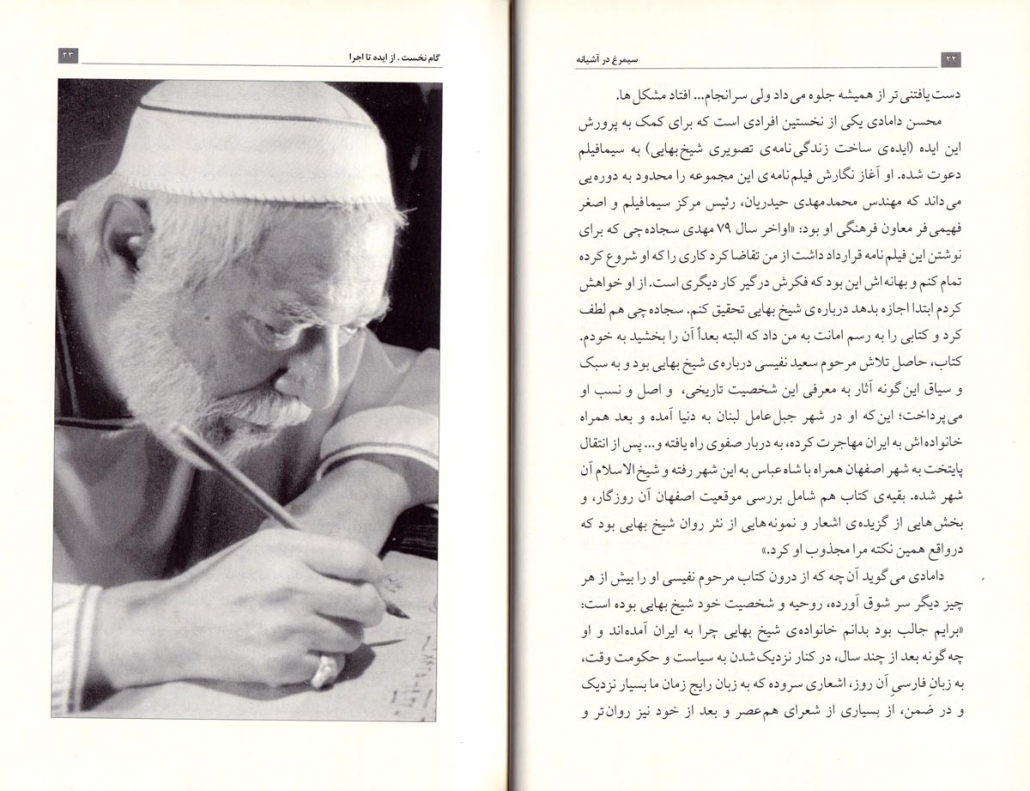 ۲۲
سیمرغ در آشیانه
دست‌یافتنی‌تر از همیشه جلوه می‌داد ولی سرانجام... افتاد مشکل‌ها.
محسن دامادی یکی از نخستین افرادی است که برای کمک به پرورش
این ایده (ایده‌ی ساخت زندگی‌نامه‌ی تصویری شیخ‌بهایی) به سیمافیلم
دعوت شده. او آغاز نگارش فیلم‌نامه‌ی این مجموعه را محدود به دوره‌یی
می‌داند که مهندس محمدمهدی حیدریان، رئیس مرکز سیمافیلم و اصغر
فهیمی‌فر معاون فرهنگی او بود: «اواخر سال ۷۹ مهدی سجاده‌چی که برای
نوشتن این فیلم‌نامه قرارداد داشت از من تقاضا کرد کاری را که او شروع کرده
تمام کنم و بهانه‌اش این بود که فکرش درگیر کار دیگری است. از او خواهش
کردم ابتدا اجازه بدهد درباره‌ی شیخ بهایی تحقیق کنم. سجاده‌چی هم لطف
کرد و کتابی را به رسم امانت به من داد که البته بعداً آن را بخشید به خودم.
کتاب، حاصل تلاش مرحوم سعید نفیسی درباره‌ی شیخ بهایی بود و به سبک
و سیاق این‌گونه آثار به معرفی این شخصیت تاریخی، و اصل و نسب او
می‌پرداخت؛ این‌که او در شهر جبل‌عامل لبنان به دنیا آمده و بعد همراه
خانواده‌اش به ایران مهاجرت کرده، به دربار صفوی راه یافته و... پس از انتقال
پایتخت به شهر اصفهان همراه با شاه‌عباس به این شهر رفته و شیخ‌الاسلام آن
شهر شده. بقیه‌ی کتاب هم شامل بررسی موقعیت اصفهان آن روزگار، و
بخش‌هایی از گزیده‌ی اشعار و نمونه‌هایی از نثر روان شیخ بهایی بود که
درواقع همین نکته مرا مجذوب او کرد.»
دامادی می‌گوید آن‌چه که از درون کتاب مرحوم نفیسی او را بیش از هر
چیز دیگر سر شوق آورده، روحیه و شخصیت خود شیخ بهایی بوده است:
«برایم جالب بود بدانم خانواده‌ی شیخ بهایی چرا به ایران آمده‌اند و او
چه‌گونه بعد از چند سال، در کنار نزدیک‌شدن به سیاست و حکومت وقت،
به زبانِ فارسیِ آن روز، اشعاری سروده که به زبان رایج زمان ما بسیار نزدیک
و در ضمن، از بسیاری از شعرای هم‌عصر و بعد از خود نیز روان‌تر و
گام نخست . از ایده تا اجرا
۲۳